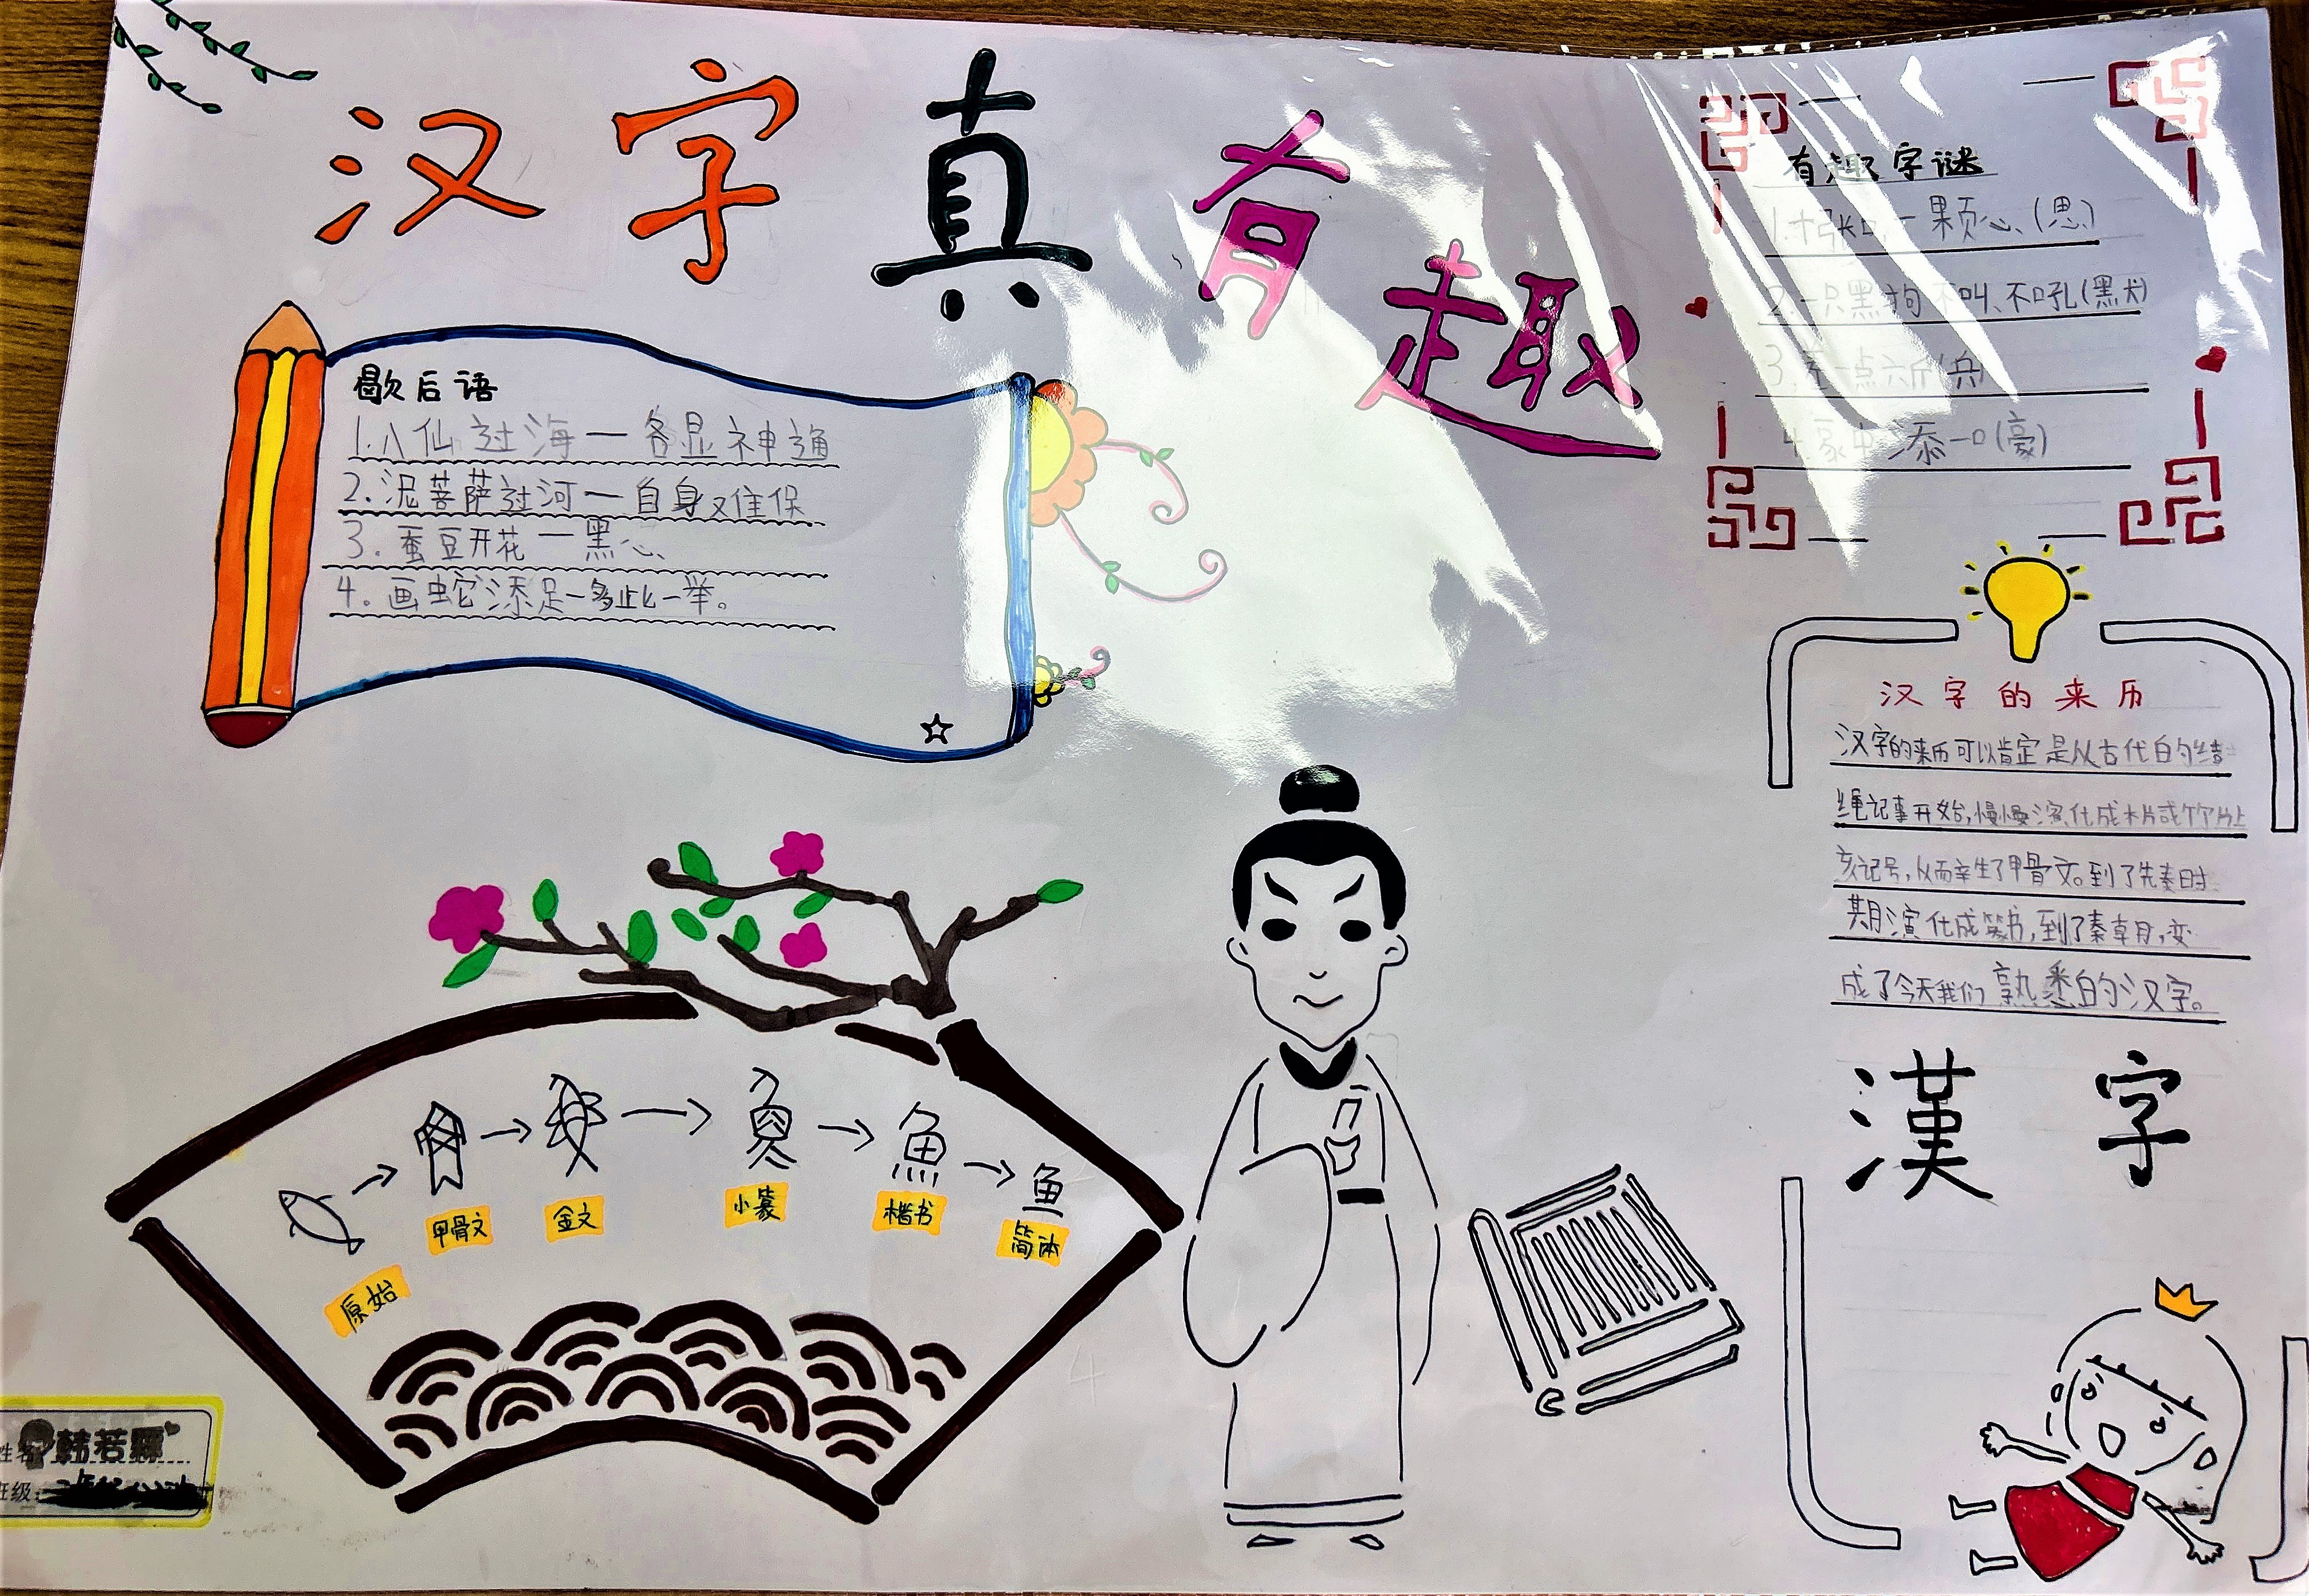 汉字真有趣
歇后语
1.八仙过海一各显神通
2.泥菩萨过河一自身难保
3.蚕豆开花一黑心
4.画蛇添足一多此一举。
有趣字谜
1.十张口,一颗心(思)
2.一只黑狗不叫、不吼(黑犬)
3.差一点六斤(兵)
4.添一口(豪)
汉字的来历
汉字的来历可以肯定是从古代的结
绳记事开始,慢慢演化成木片或竹片上
刻记号,从而产生了甲骨文。到了先秦时
期演化成篆书,到了秦朝,变
成了今天我们熟悉的汉字。
漢字
原始
甲骨文
金文
小篆
魚
楷书
鱼
简体
姓名
韩若
班级: